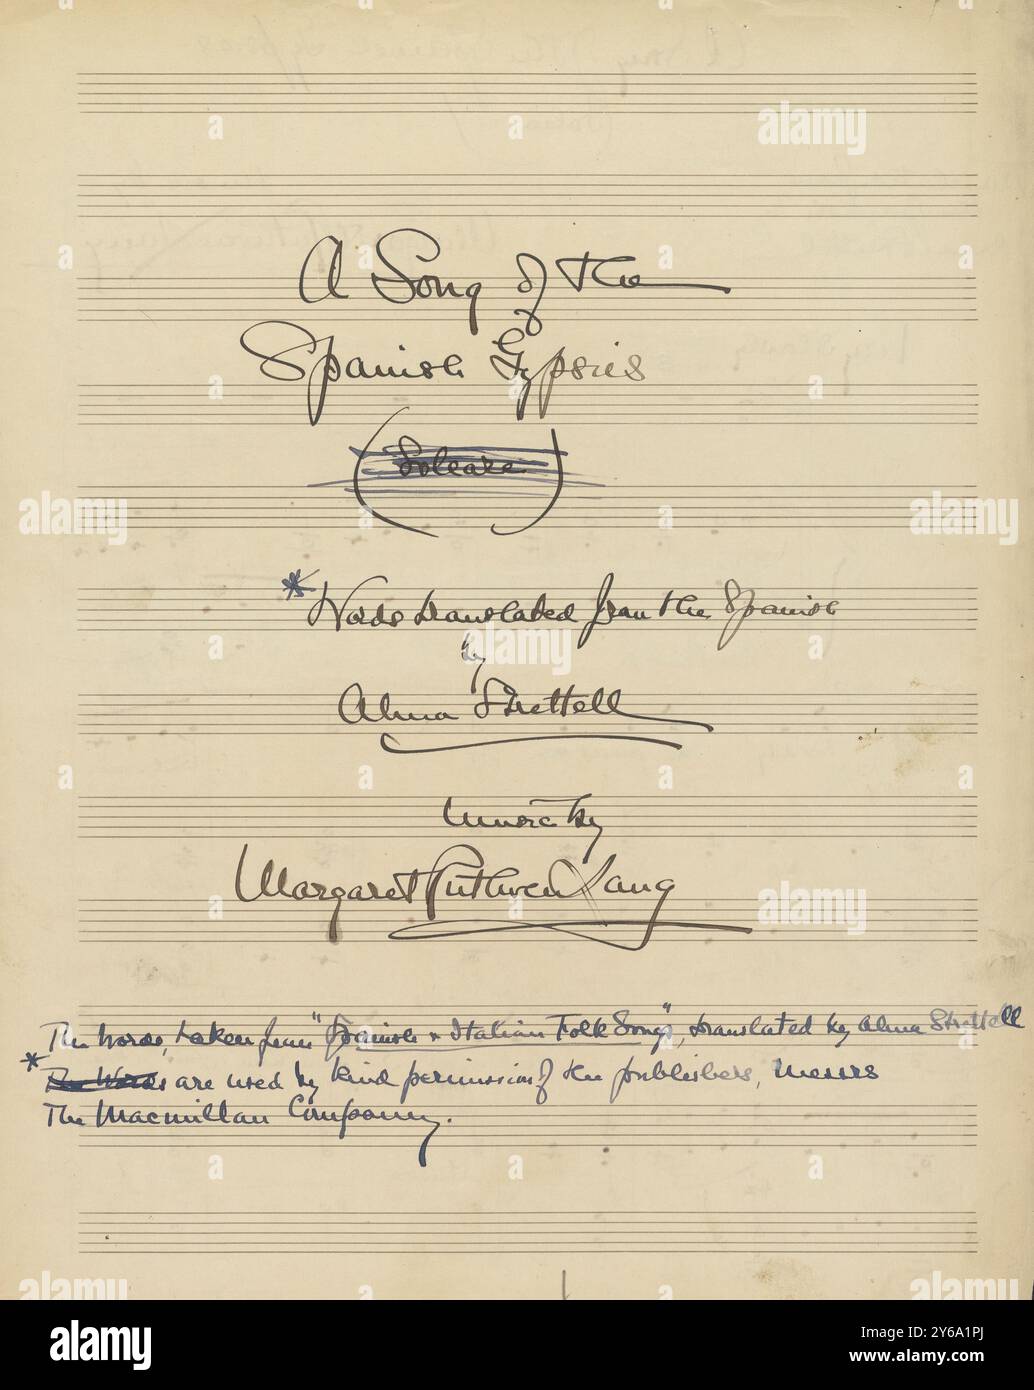 A Song of the
Spanish Gypsies
(Soleare)
* Words translated from the Spanish
by
Alma Strettell
Music by
Margaret Ruthven Lang
The words, taken from "Spanish & Italian Folk Songs", translated by Alma Strettell
* The Words are used by kind permission of the publishers, Messrs
The Macmillan Company.
alamy
Image ID: 2Y6A1PJ
www.alamy.com